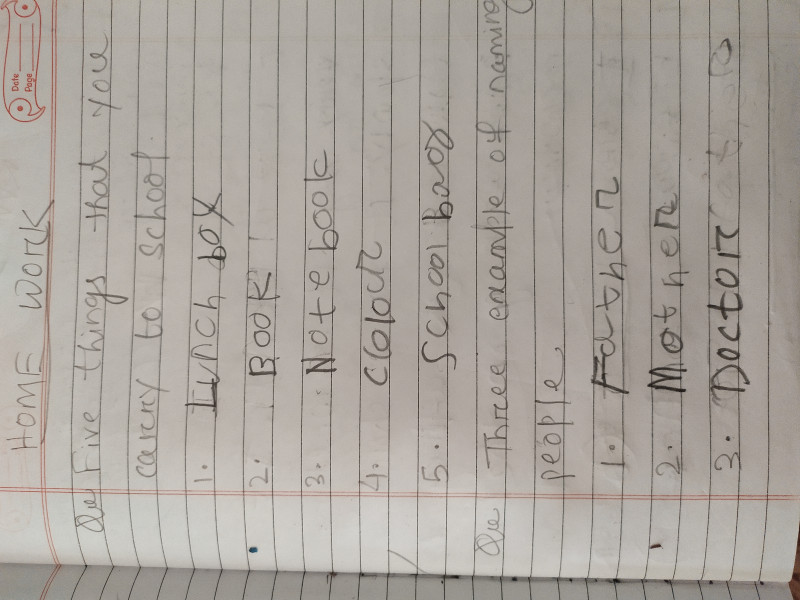 Date
Page
HOME WORK
Qu Five things that you
carry to school.
1. Lunch box
2. Book
3. Note book
4. Colour
5. School baag
Qu Three example of naming
people
1. Father
2. Mother
3. Doctor